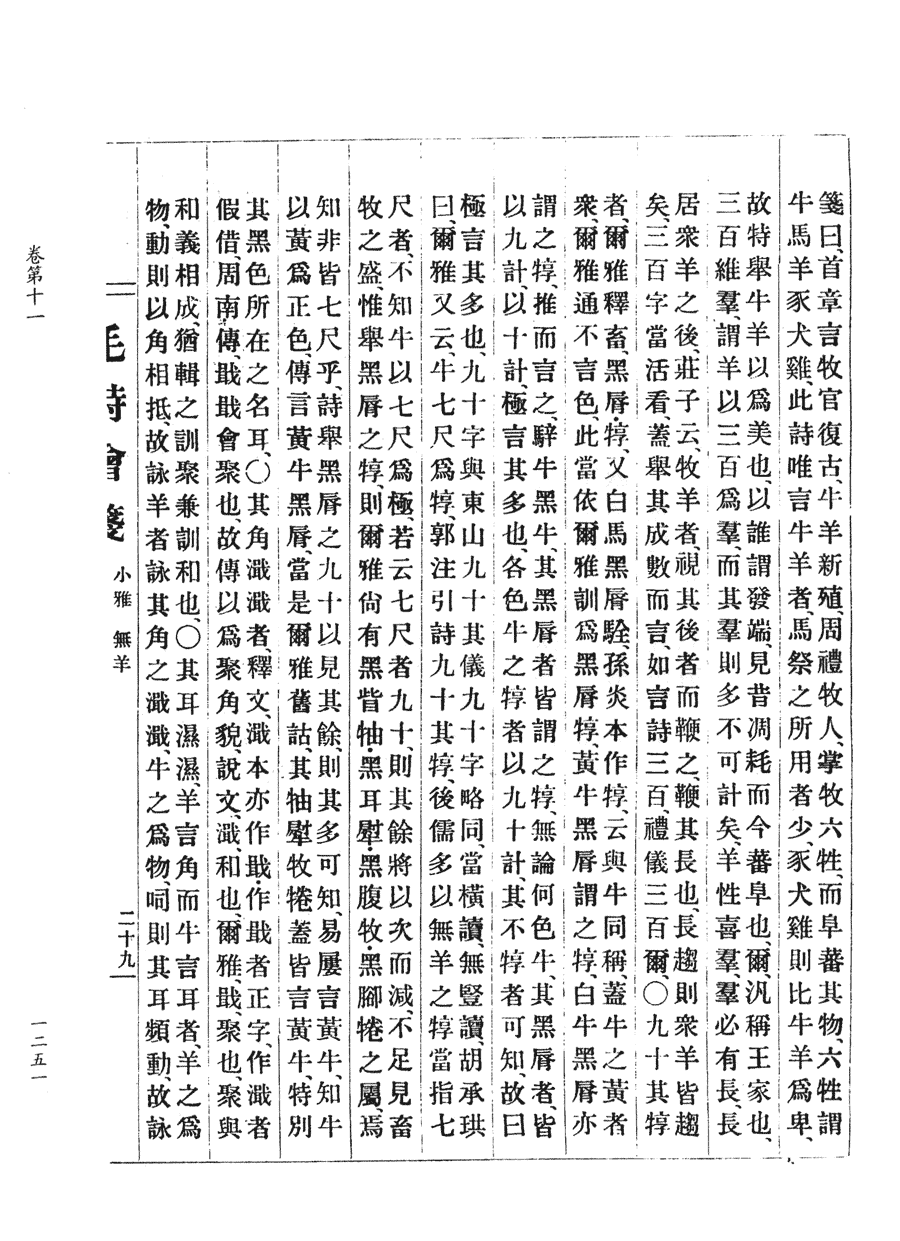 箋曰、首章言牧官復古、牛羊新殖、周禮牧人、掌牧六牲、而阜蕃其物、六牲謂
牛馬羊豕犬雞、此詩唯言牛羊者、馬祭之所用者少、豕犬雞則比牛羊爲卑、
故特舉牛羊以爲美也、以誰謂發端、見昔凋耗而今蕃阜也、爾、汎稱王家也、
三百維羣、謂羊以三百爲羣、而其羣則多不可計矣、羊性喜羣、羣必有長、長
居衆羊之後、莊子云、牧羊者、視其後者而鞭之、鞭其長也、長趨則衆羊皆趨
矣、三百字當活看、蓋舉其成數而言、如言詩三百、禮儀三百爾、〇九十其犉
者、爾雅釋畜、黑脣犉、又白馬黑脣駩、孫炎本作犉、云與牛同稱、蓋牛之黃者
衆、爾雅通不言色、此當依爾雅訓爲黑脣犉、黃牛黑脣謂之犉、白牛黑脣亦
謂之犉、推而言之、騂牛黑牛、其黑脣者皆謂之犉、無論何色牛、其黑脣者、皆
以九計、以十計、極言其多也、各色牛之犉者以九十計、其不犉者可知、故曰
極言其多也、九十字與東山九十其儀九十字略同、當橫讀、無豎讀、胡承珙
曰、爾雅又云、牛七尺爲犉、郭注引詩九十其犉、後儒多以無羊之犉當指七
尺者、不知牛以七尺爲極、若云七尺者九十、則其餘將以次而減、不足見畜
牧之盛、惟舉黑脣之犉、則爾雅尙有黑眥牰・黑耳犚・黑腹牧・黑腳犈之屬、焉
知非皆七尺乎、詩舉黑脣之九十以見其餘、則其多可知、易屢言黃牛、知牛
以黃爲正色、傳言黃牛黑脣、當是爾雅舊詁、其牰犚牧犈蓋皆言黃牛、特別
其黑色所在之名耳、〇其角濈濈者、釋文、濈本亦作戢・作戢者正字、作濈者
假借、周南傳、戢戢會聚也、故傳以爲聚角貌、說文、濈、和也、爾雅、戢、聚也、聚與
和義相成、猶輯之訓聚兼訓和也、〇其耳濕濕、羊言角而牛言耳者、羊之爲
物、動則以角相抵、故詠羊者詠其角之濈濈、牛之爲物、呞則其耳頻動、故詠
毛詩會箋 小雅 無羊 二十九
卷第十一 一二五一